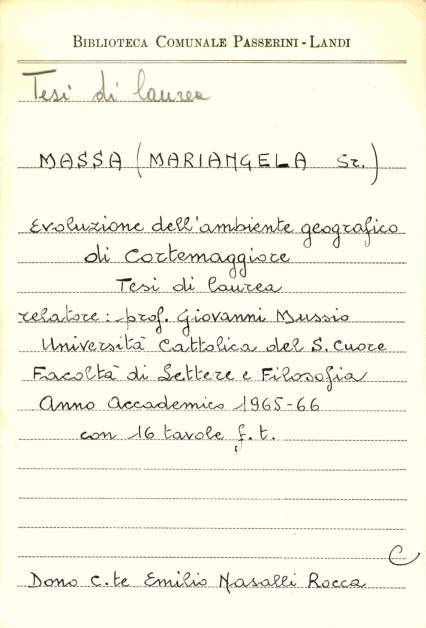 BIBLIOTECA COMUNALE PASSERINI - LANDI
Tesi di laurea
MASSA (MARIANGELA Sr.)
Evoluzione dell'ambiente geografico
di Cortemaggiore
Tesi di laurea
relatore: prof. Giovanni Mussio
Università Cattolica del S. Cuore
Facoltà di Lettere e Filosofia
Anno Accademico 1965-66
con 16 tavole f. t.
C
Dono C.te Emilio Nasalli Rocca